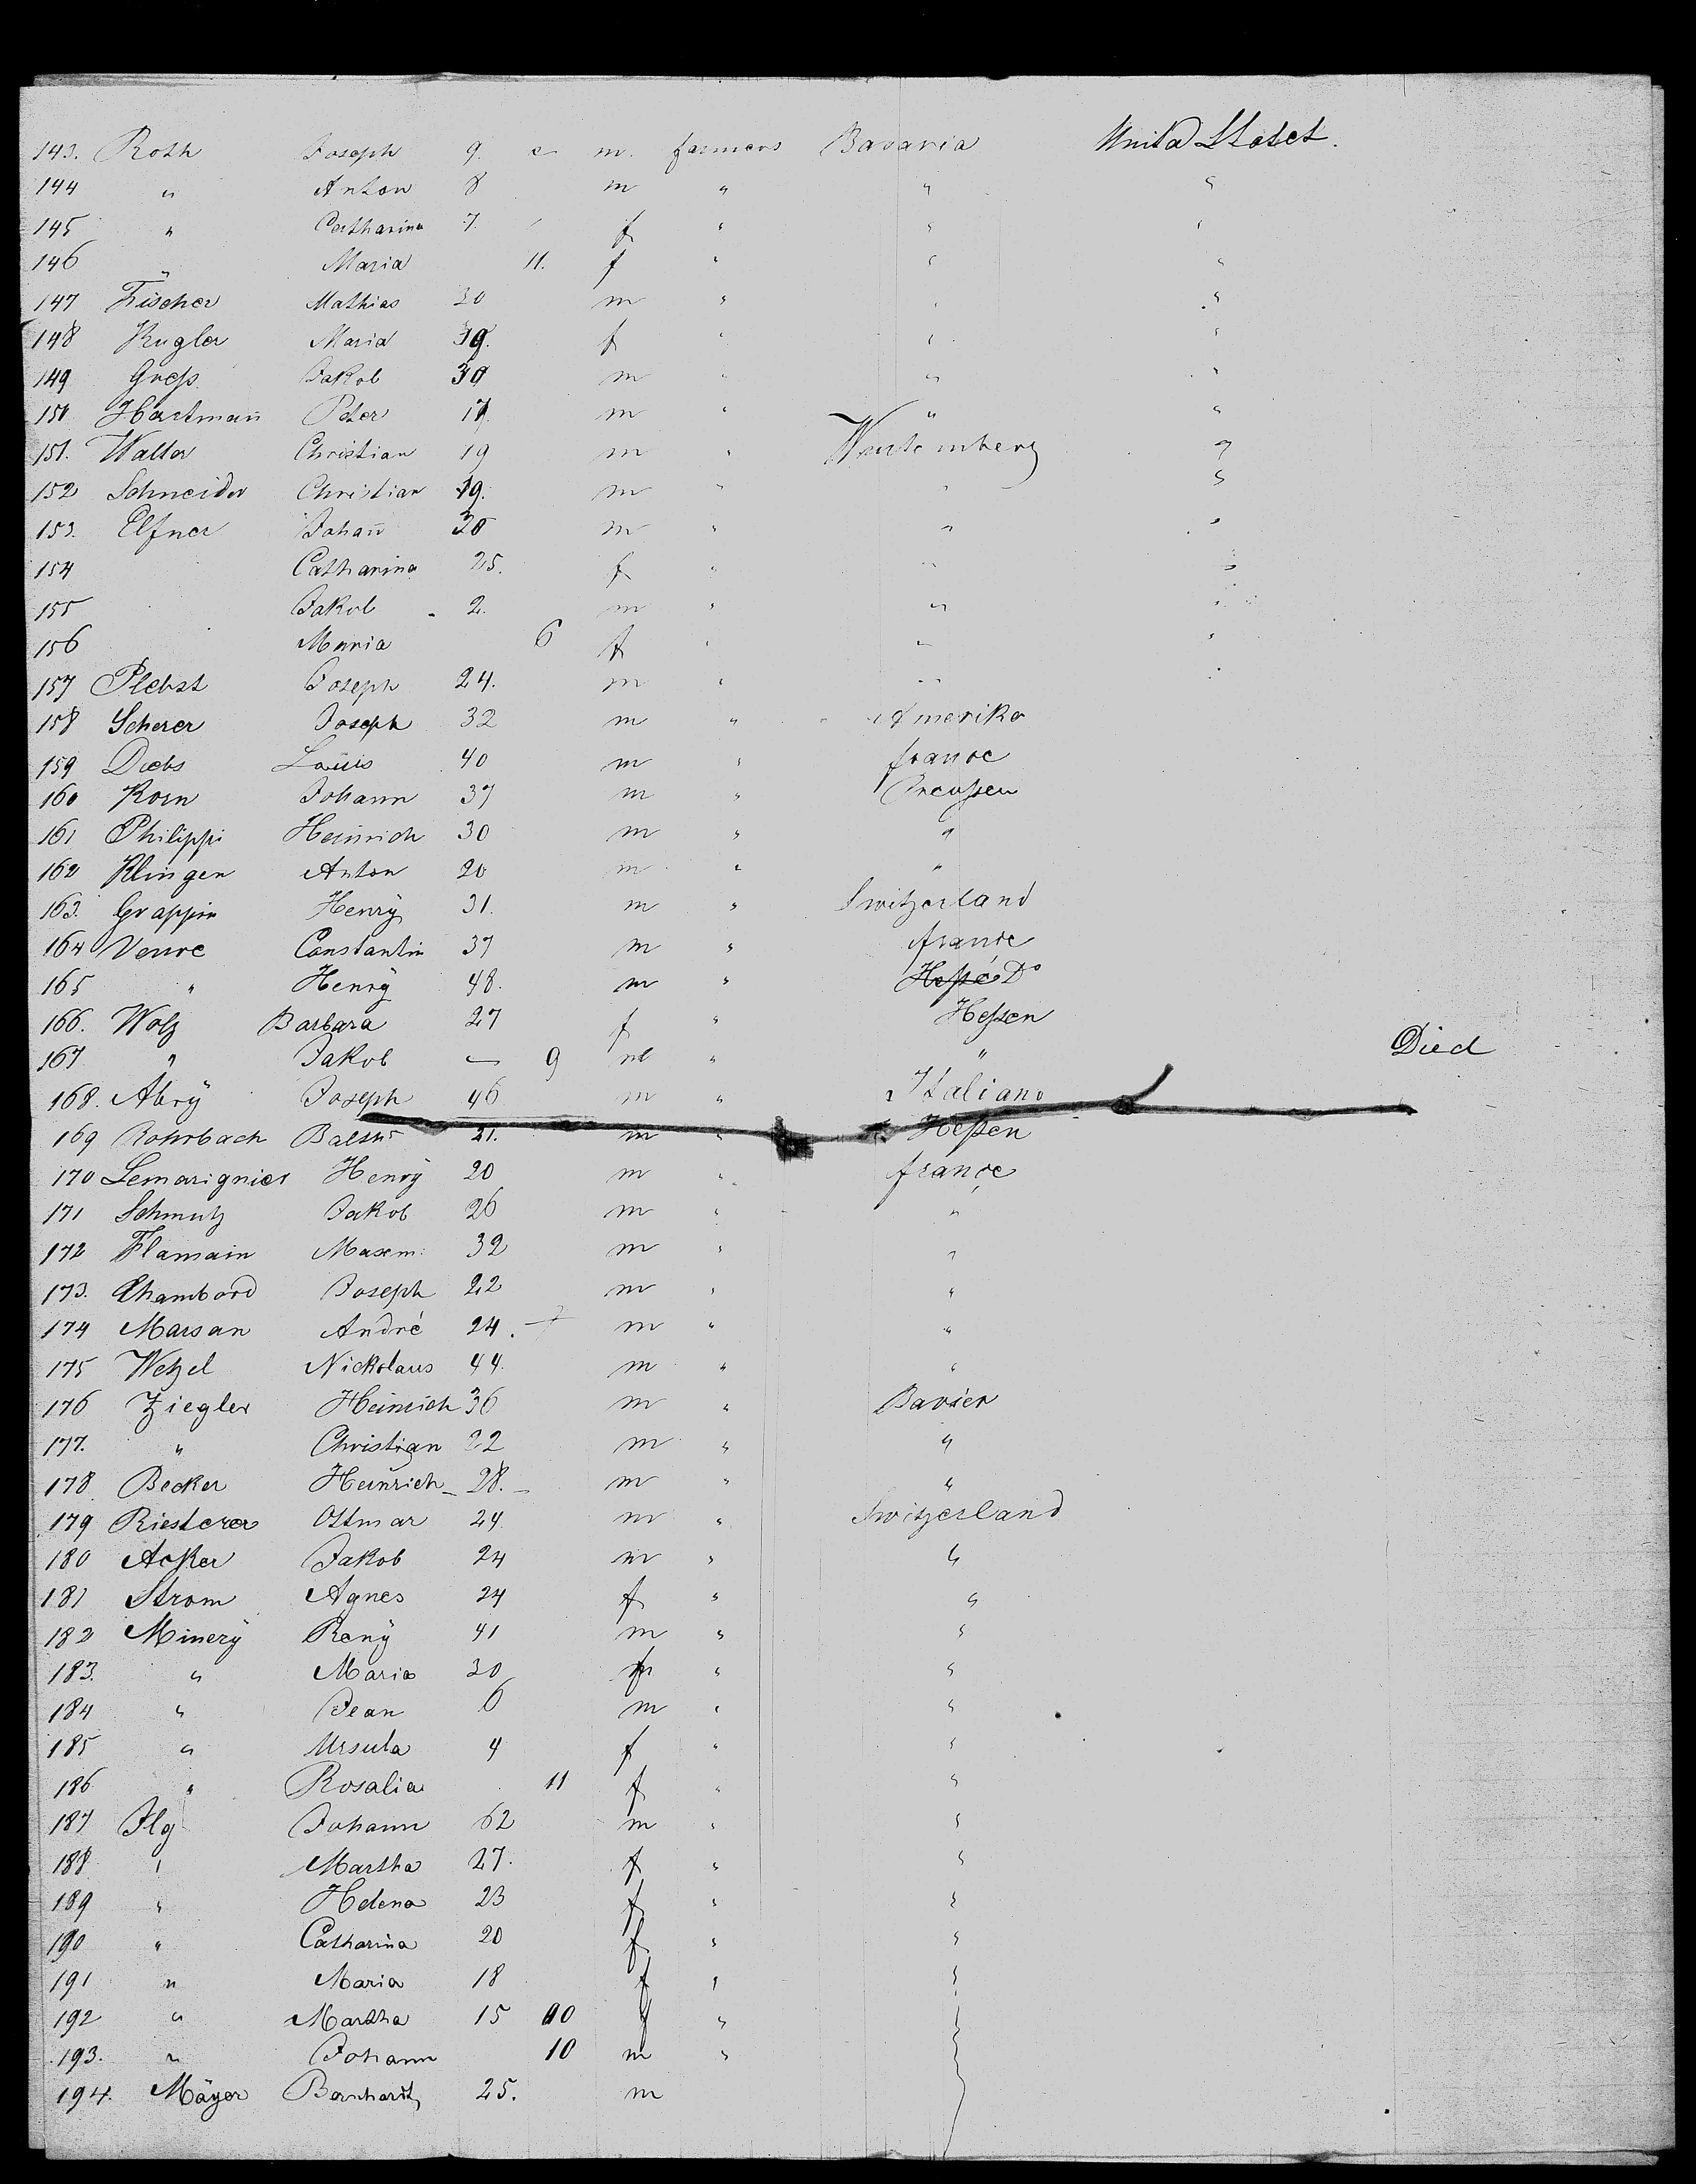 143. Roth Joseph 9. m. farmers Bavaria United States.
144 " Anton 8 m " " "
145 " Catharina 7. f " " "
146 " Maria 11. f " " "
147 Fischer Mathias 30 m " " "
148 Kugler Maria 39. f " " "
149 Greß Jakob 30 m " " "
150 Hartmañ Peter 17. m " " "
151. Walter Christian 19 m " Wurtemberg "
152 Schneider Christian 19. m " " "
153. Elfner Johañ 30 m " " "
154 Catharina 25. f " " "
155 Jakob 2. m " " "
156 Maria 6 f " " "
157 Plebst Joseph 24. m " " "
158 Scherer Joseph 32 m " Amerika
159 Diebs Louis 40 m " france
160 Korn Johann 37 m " Preußen
161 Philippi Heinrich 30 m " "
162 Klingen Anton 20 m " "
163. Grappin Henrÿ 31. m " Switzerland
164 Veuve Constantin 37 m " france
165 " Henrÿ 48. m " Do
166. Wolz Barbara 27 f " Heßen
167 " Jakob — 9 m " " Died
168. Abrÿ Joseph 46 m " Italiano
169 Rohrbach 21. m " Heßen
170 Lemarignier Henrÿ 20 m " france
171 Schmutz Jakob 26 m " "
172 Flamain Maxem: 32 m " "
173. Chambord Joseph 22 m " "
174 Marsan André 24. m " "
175 Wetzel Nickolaus 44. m " "
176 Ziegler Heinrich 36 m " Bavier
177. " Christian 22 m " "
178. Becker Heinrich 28. m " "
179 Riesterer Ottmar 24. m " Switzerland
180 Acker Jakob 24 m " "
181 Strom Agnes 24 f " "
182 Minerÿ Remÿ 41 m " "
183. " Maria 30 f " "
184 " Jean 6 m " "
185 " Ursula 4 f " "
186 " Rosalia 11 f " "
187 Ilg Johann 62 m " "
188 " Martha 27. f " "
189 " Helena 23 f " "
190 " Catharina 20 f " "
191 " Maria 18 f " "
192 " Martha 15 f "
193. " Johann 10 m "
194. Mäyer Bernhardt 25. m